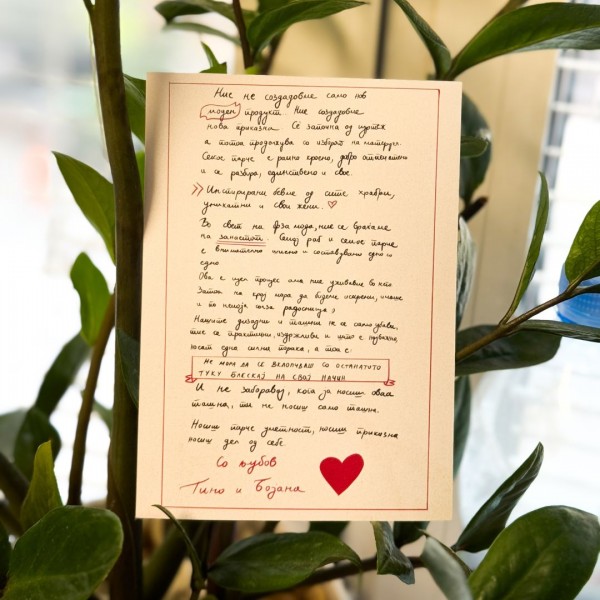 Ние не создадовме само нов
моден продукт. Ние создадовме
нова приказна. Сѐ започна од идеја
а потоа продолжува со изборот на материјал.
Секое парче е рачно кроено, добро
и се разбира, единствено и свое.
>> Инспирирани бевме од сите храбри,
уникатни и свои жени. ♡
Во свет на фрза мода, ние се враќаме
на занаетот. Секој раб и секое парче
е внимателно шиено и составувано едно по
едно
Ова е цел процес ама ние уживаме во него
Затоа на крај мора да бидеме искрени,
и по некоја солза радосница :)
Нашите дизајни и ташни не се само убави,
тие се практични, издржливи и што е најважно,
носат една силна порака, а тоа е:
НЕ МОРА ДА СЕ ВКЛОПУВАШ СО ОСТАНАТОТО
ТУКУ БЛЕСКАЈ НА СВОЈ НАЧИН
И не заборавај, кога ја носиш оваа
ташна, ти не носиш само ташна.
Носиш парче уметност, носиш приказна
носиш дел од себе.
Со љубов
Тино и Бојана